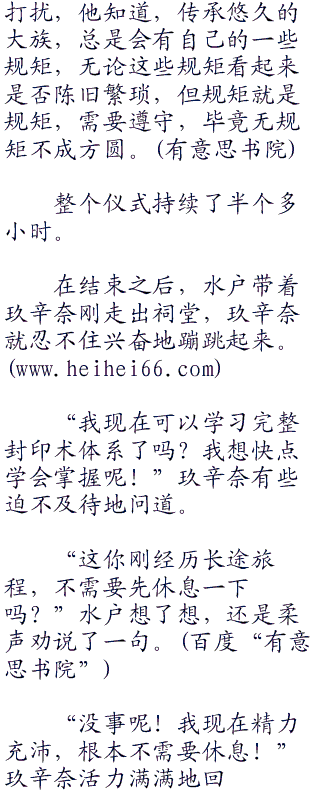 打扰，他知道，传承悠久的
大族，总是会有自己的一些
规矩，无论这些规矩看起来
是否陈旧繁琐，但规矩就是
规矩，需要遵守，毕竟无规
矩不成方圆。(有意思书院)
整个仪式持续了半个多
小时。
在结束之后，水户带着
玖辛奈刚走出祠堂，玖辛奈
就忍不住兴奋地蹦跳起来。
(www.heihei66.com)
“我现在可以学习完整
封印术体系了吗？我想快点
学会掌握呢！”玖辛奈有些
迫不及待地问道。
“这你刚经历长途旅
程，不需要先休息一下
吗？”水户想了想，还是柔
声劝说了一句。(百度“有意
思书院”)
“没事呢！我现在精力
充沛，根本不需要休息！”
玖辛奈活力满满地回